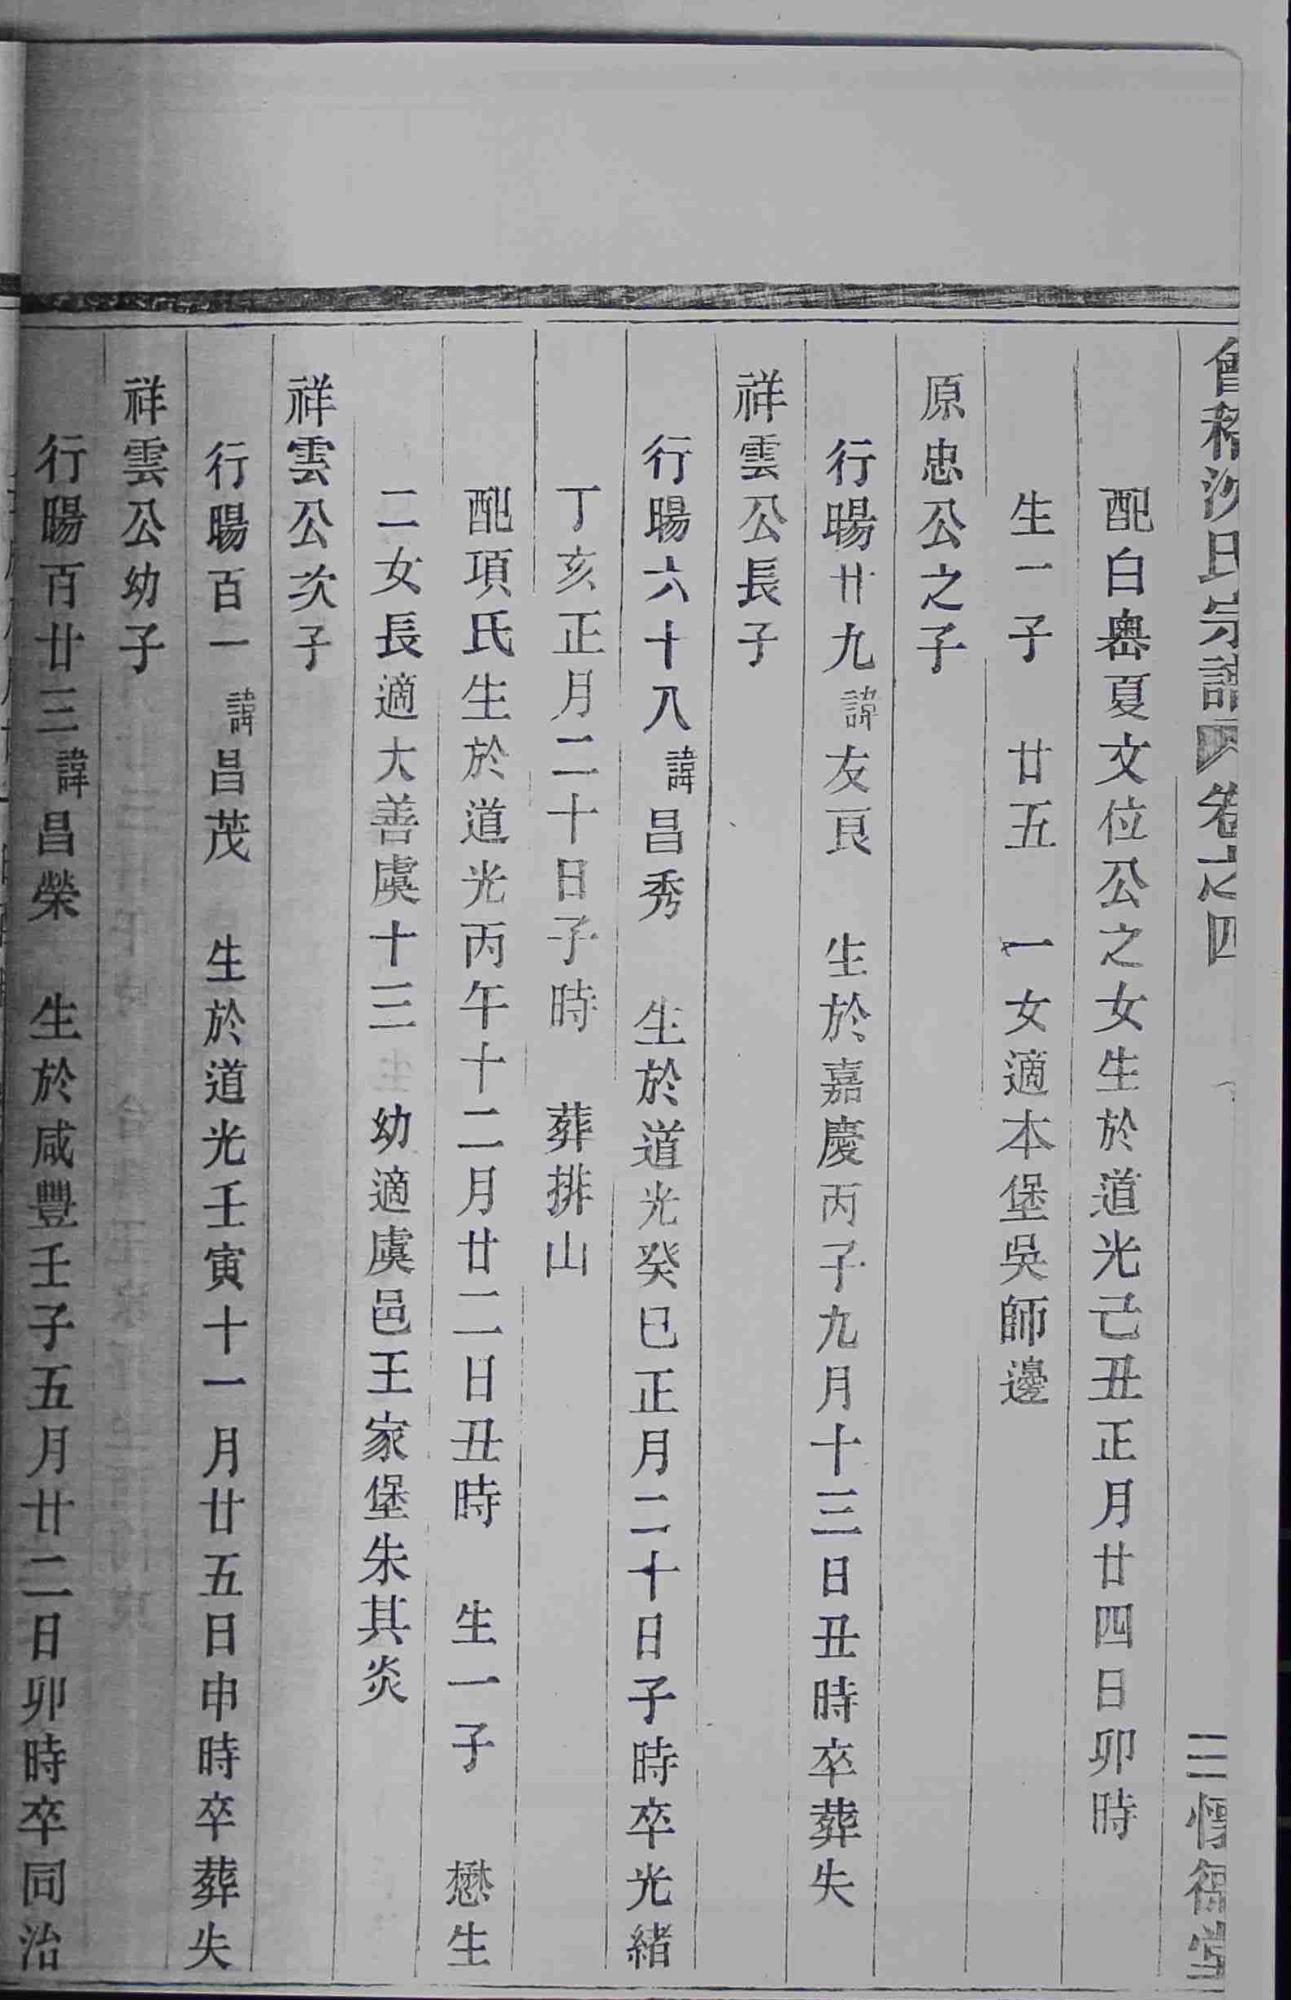 會稽沈氏宗譜 卷之四 三 懷德堂
配白嶴夏文位公之女生於道光己丑正月廿四日卯時
生一子 廿五 一女適本堡吳師邊
原忠公之子
行暘廿九諱友良 生於嘉慶丙子九月十三日丑時卒葬失
祥雲公長子
行暘六十八諱昌秀 生於道光癸巳正月二十日子時卒光緒
丁亥正月二十日子時 葬排山
配項氏生於道光丙午十二月廿二日丑時 生一子 懋生
二女長適大善虞十三 幼適虞邑王家堡朱其炎
祥雲公次子
行暘百一諱昌茂 生於道光壬寅十一月廿五日申時卒葬失
祥雲公幼子
行暘百廿三諱昌榮 生於咸豐壬子五月廿二日卯時卒同治